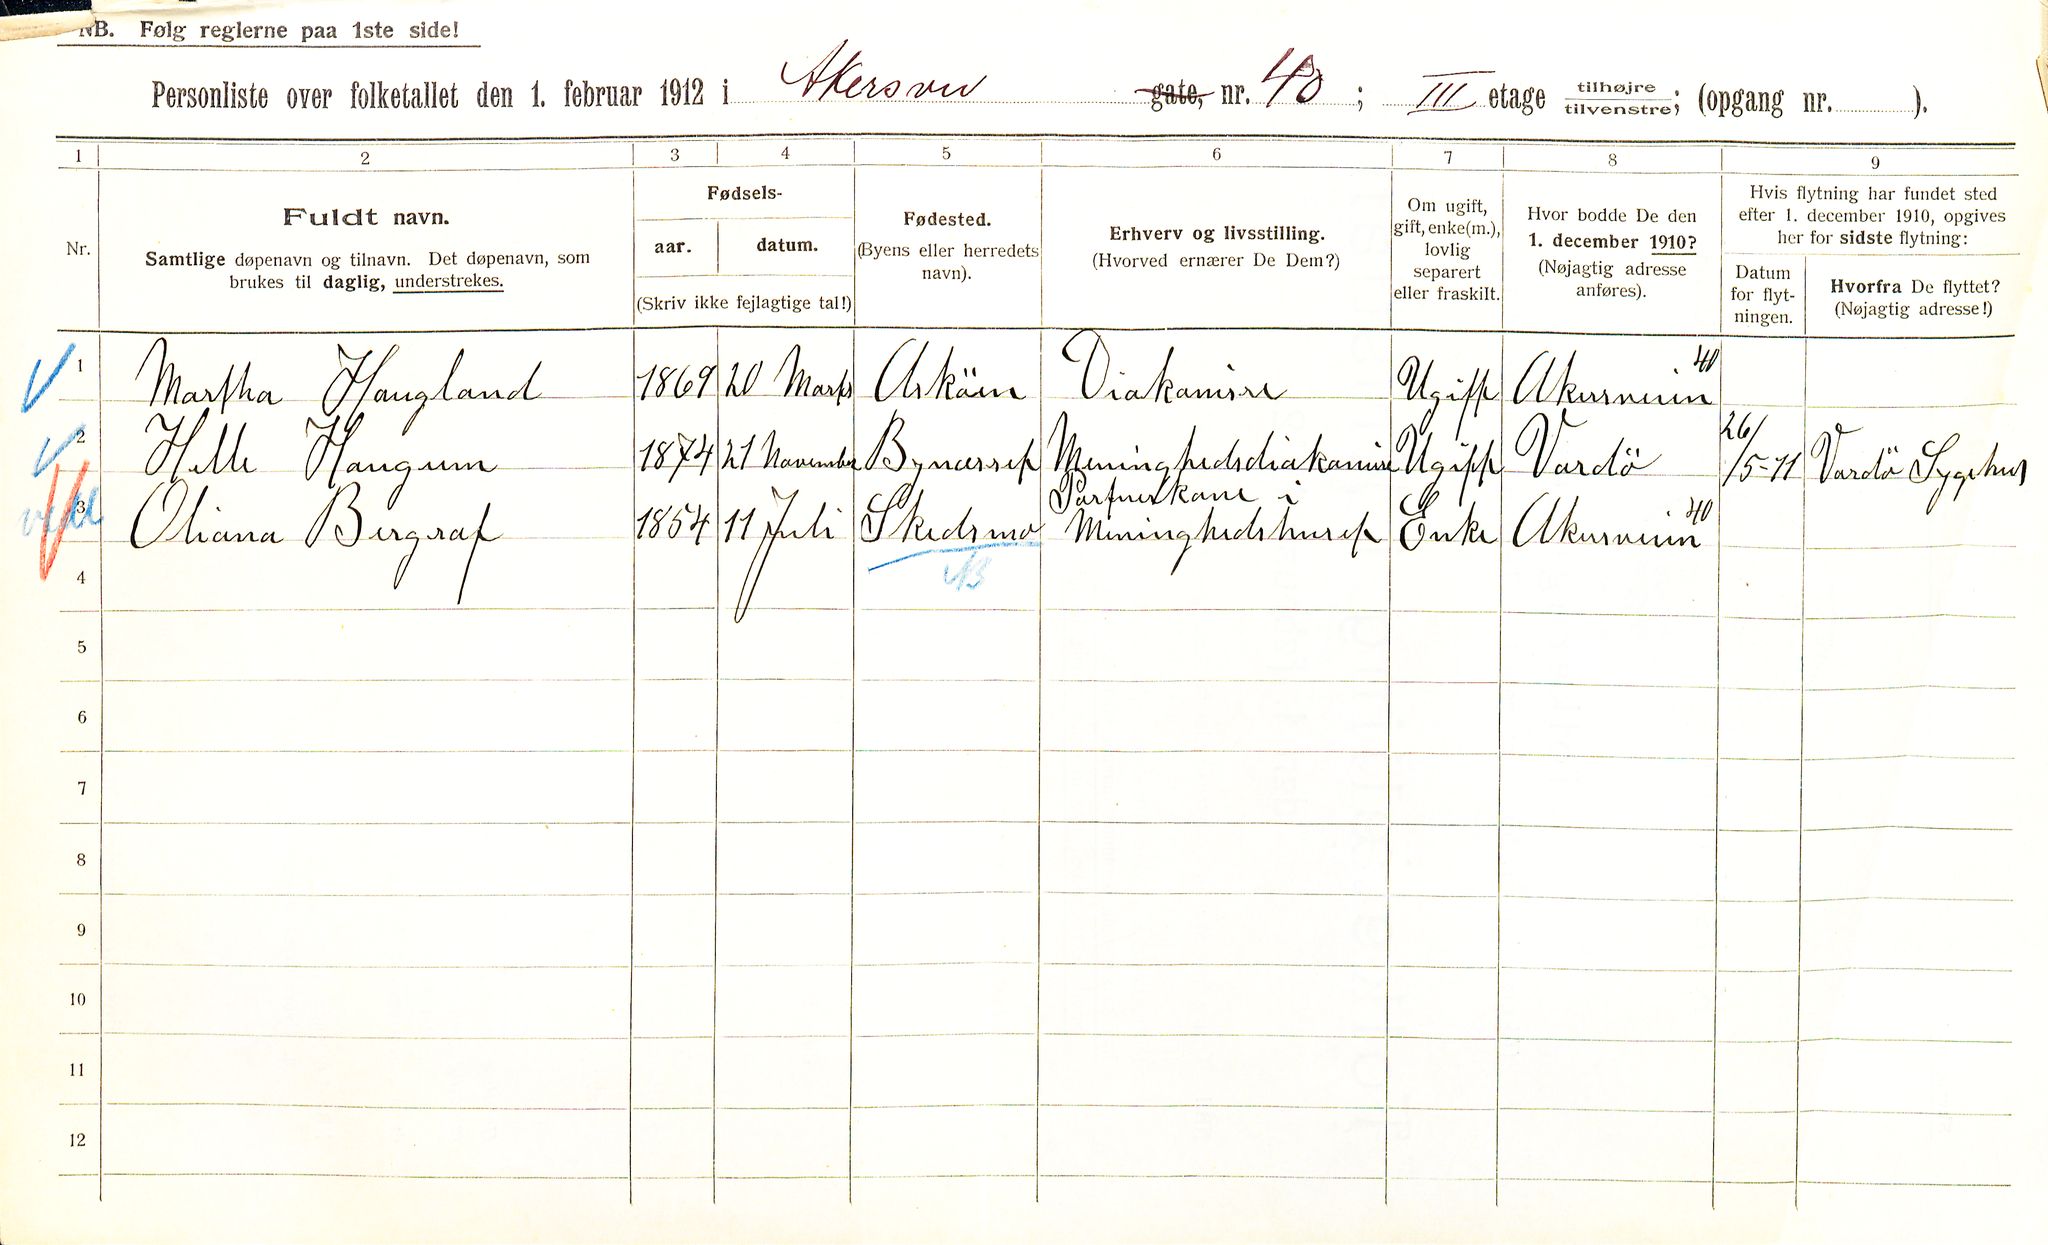 NB. Følg reglerne paa 1ste side!
Personliste over folketallet den 1. februar 1912 i Akersvei gate, nr. 40; III etage tilhøjre/tilvenstre; (opgang nr. ).
1 2 3 4 5 6 7 8 9
Nr.
Fuldt navn.
Samtlige døpenavn og tilnavn. Det døpenavn, som
brukes til daglig, understrekes.
Fødsels-
aar. datum.
(Skriv ikke fejlagtige tal!)
Fødested.
(Byens eller herredets
navn).
Erhverv og livsstilling.
(Hvorved ernærer De Dem?)
Om ugift,
gift, enke(m.),
lovlig
separert
eller fraskilt.
Hvor bodde De den
1. december 1910?
(Nøjagtig adresse
anføres).
Hvis flytning har fundet sted
efter 1. december 1910, opgives
her for sidste flytning:
Datum
for flyt-
ningen.
Hvorfra De flyttet?
(Nøjagtig adresse!)
1 Martha Haugland 1869 20 Marts Asköen Diakonisse Ugift Akersveien 40
2 Helle Haugum 1874 21 November Bynæsset Meninghedsdiakonisse Ugift Vardö 26/5-11 Vardö Sygehus
3 Oliana Bergraf 1854 11 Juli Skedsmo Portnerkone i Menighedshuset Enke Akersveien 40
NB
4
5
6
7
8
9
10
11
12